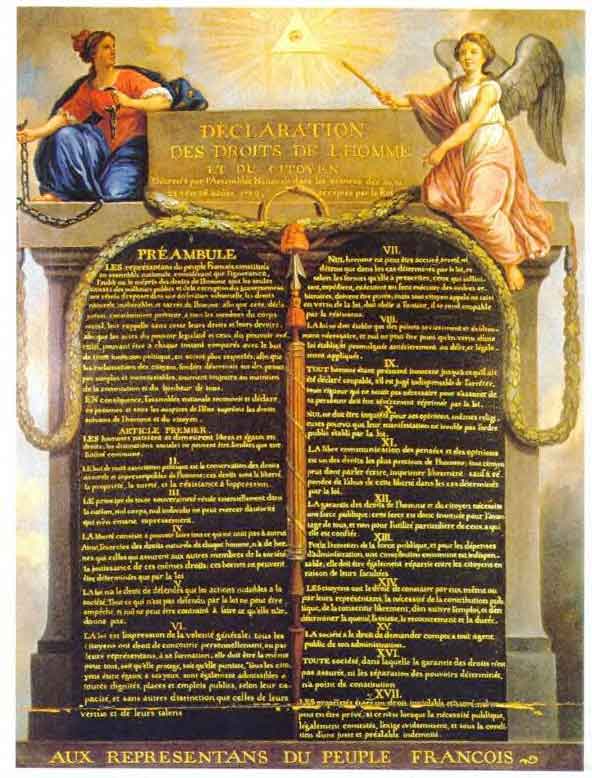 DÉCLARATION
DES DROITS DE L'HOMME
ET DU CITOYEN,
Décrétés par l'Assemblée Nationale dans les séances des
acceptés par le Roi
PRÉAMBULE
LES représentans du peuple François, constitués
en assemblée nationale, considérant que l'ignorance,
l'oubli ou le mépris des droits de l'homme sont les seules
causes des malheurs publics et de la corruption des gouvernemens
ont résolu d'exposer dans une déclaration solemnelle, les droits
naturels, inaliénables et sacrés de l'homme; afin que cette décla-
ration, constamment présente à tous les membres du corps
social, leur rappelle sans cesse leurs droits et leurs devoirs;
afin que les actes du pouvoir législatif et ceux du pouvoir exé-
cutif, pouvant être à chaque instant comparés avec le but
de toute institution politique, en soient plus respectés; afin que
les réclamations des citoyens, fondées désormais sur des princi-
pes simples et incontestables, tournent toujours au maintien
de la constitution et du bonheur de tous.
EN conséquence, l'assemblée nationale reconnoit et déclare
en présence et sous les auspices de l'Etre suprême les droits
suivans de l'homme et du citoyen.
ARTICLE PREMIER.
LES hommes naissent et demeurent libres et égaux en
droits; les distinctions sociales ne peuvent être fondées que sur
l'utilité commune.
II.
LE but de toute association politique est la conservation des droits
naturels et imprescriptibles de l'homme; ces droits sont la liberté,
la propriété, la sureté, et la résistance à l'oppression.
III.
LE principe de toute souveraineté réside essentiellement dans
la nation, nul corps, nul individu ne peut exercer d'autorité
qui n'en émane expressément.
IV.
LA liberté consiste à pouvoir faire tout ce qui ne nuit pas à autrui
Ainsi, l'exercice des droits naturels de chaque homme, n'a de bor-
nes que celles qui assurent aux autres membres de la société
la jouissance de ces mêmes droits; ces bornes ne peuvent
être déterminées que par la loi
V.
LA loi n'a le droit de défendre que les actions nuisibles à la
société. Tout ce qui n'est pas défendu par la loi ne peut être
empêché, et nul ne peut être contraint à faire ce qu'elle n'or-
donne pas.
VI.
LA loi est l'expression de la volonté générale; tous les
citoyens ont droit de concourir personnellement, ou par
leurs représentans, à sa formation; elle doit être la même
pour tous, soit qu'elle protege, soit qu'elle punisse, Tous les cito-
yens étant égaux à ses yeux, sont également admissibles à
toutes dignités, places et emplois publics, selon leur ca-
pacité, et sans autres distinction que celles de leurs
vertus et de leurs talens
VII.
NUL homme ne peut être accusé, arrêté, ni
détenu que dans les cas déterminés par la loi, et
selon les formes qu'elle a prescrites, ceux qui sollici-
tent, expédient, exécutent ou font exécuter des ordres ar-
bitraires, doivent être punis; mais tout citoyen appelé ou saisi
en vertu de la loi, doit obéir à l'instant, il se rend coupable
par la résistance.
VIII.
LA loi ne doit établir que des peines strictement et évidem-
ment nécessaire, et nul ne peut être puni qu'en vertu d'une
loi établie et promulguée antérieurement au délit, et légale-
ment appliquée.
IX.
TOUT homme étant présumé innocent jusqu'à ce qu'il ait
été déclaré coupable, s'il est jugé indispensable de l'arrêter,
toute rigueur qui ne serait pas nécessaire pour s'assurer de
sa personne doit être sévèrement réprimée par la loi.
X.
NUL ne doit être inquiété pour ses opinions, mêmes religi-
euses pourvu que leur manifestation ne trouble pas l'ordre
public établi par la loi.
XI.
LA libre communication des pensées et des opinions
est un des droits les plus precieux de l'homme; tout citoyen
peut donc parler, écrire, imprimer librement: sauf à ré-
pondre de l'abus de cette liberté dans les cas déterminés
par la loi.
XII.
LA garantie des droits de l'homme et du citoyen nécessite
une force publique; cette force est donc instituée pour l'avan-
tage de tous, et non pour l'utilité particuliere de ceux à qui
elle est confiée.
XIII.
Pour l'entretien de la force publique, et pour les dépenses
d'administration, une contribution commune est indispen-
sable; elle doit être également répartie entre les citoyens en
raison de leurs facultées.
XIV.
LES citoyens ont le droit de constater par eux même ou
par leurs représentans, la nécessité de la contribution pub-
lique, de la consentir librement, d'en suivre l'emploi, et d'en
déterminer la quotité, l'assiette, le recouvrement et la durée.
XV.
LA société a le droit de demander compte à tout agent
public de son administration.
XVI.
TOUTE société, dans laquelle la garantie des droits n'est
pas assurée, ni la séparation des pouvoirs déterminée,
n'a point de constitution.
XVII.
LES propriétés étant un droit inviolable et sacré, nul ne
peut en être privé, si ce n'est lorsque la nécessité publique,
légalement constatée, l'exige évidemment, et sous la condi-
tion d'une juste et préalable indemnité.
AUX REPRESENTANS DU PEUPLE FRANCOIS